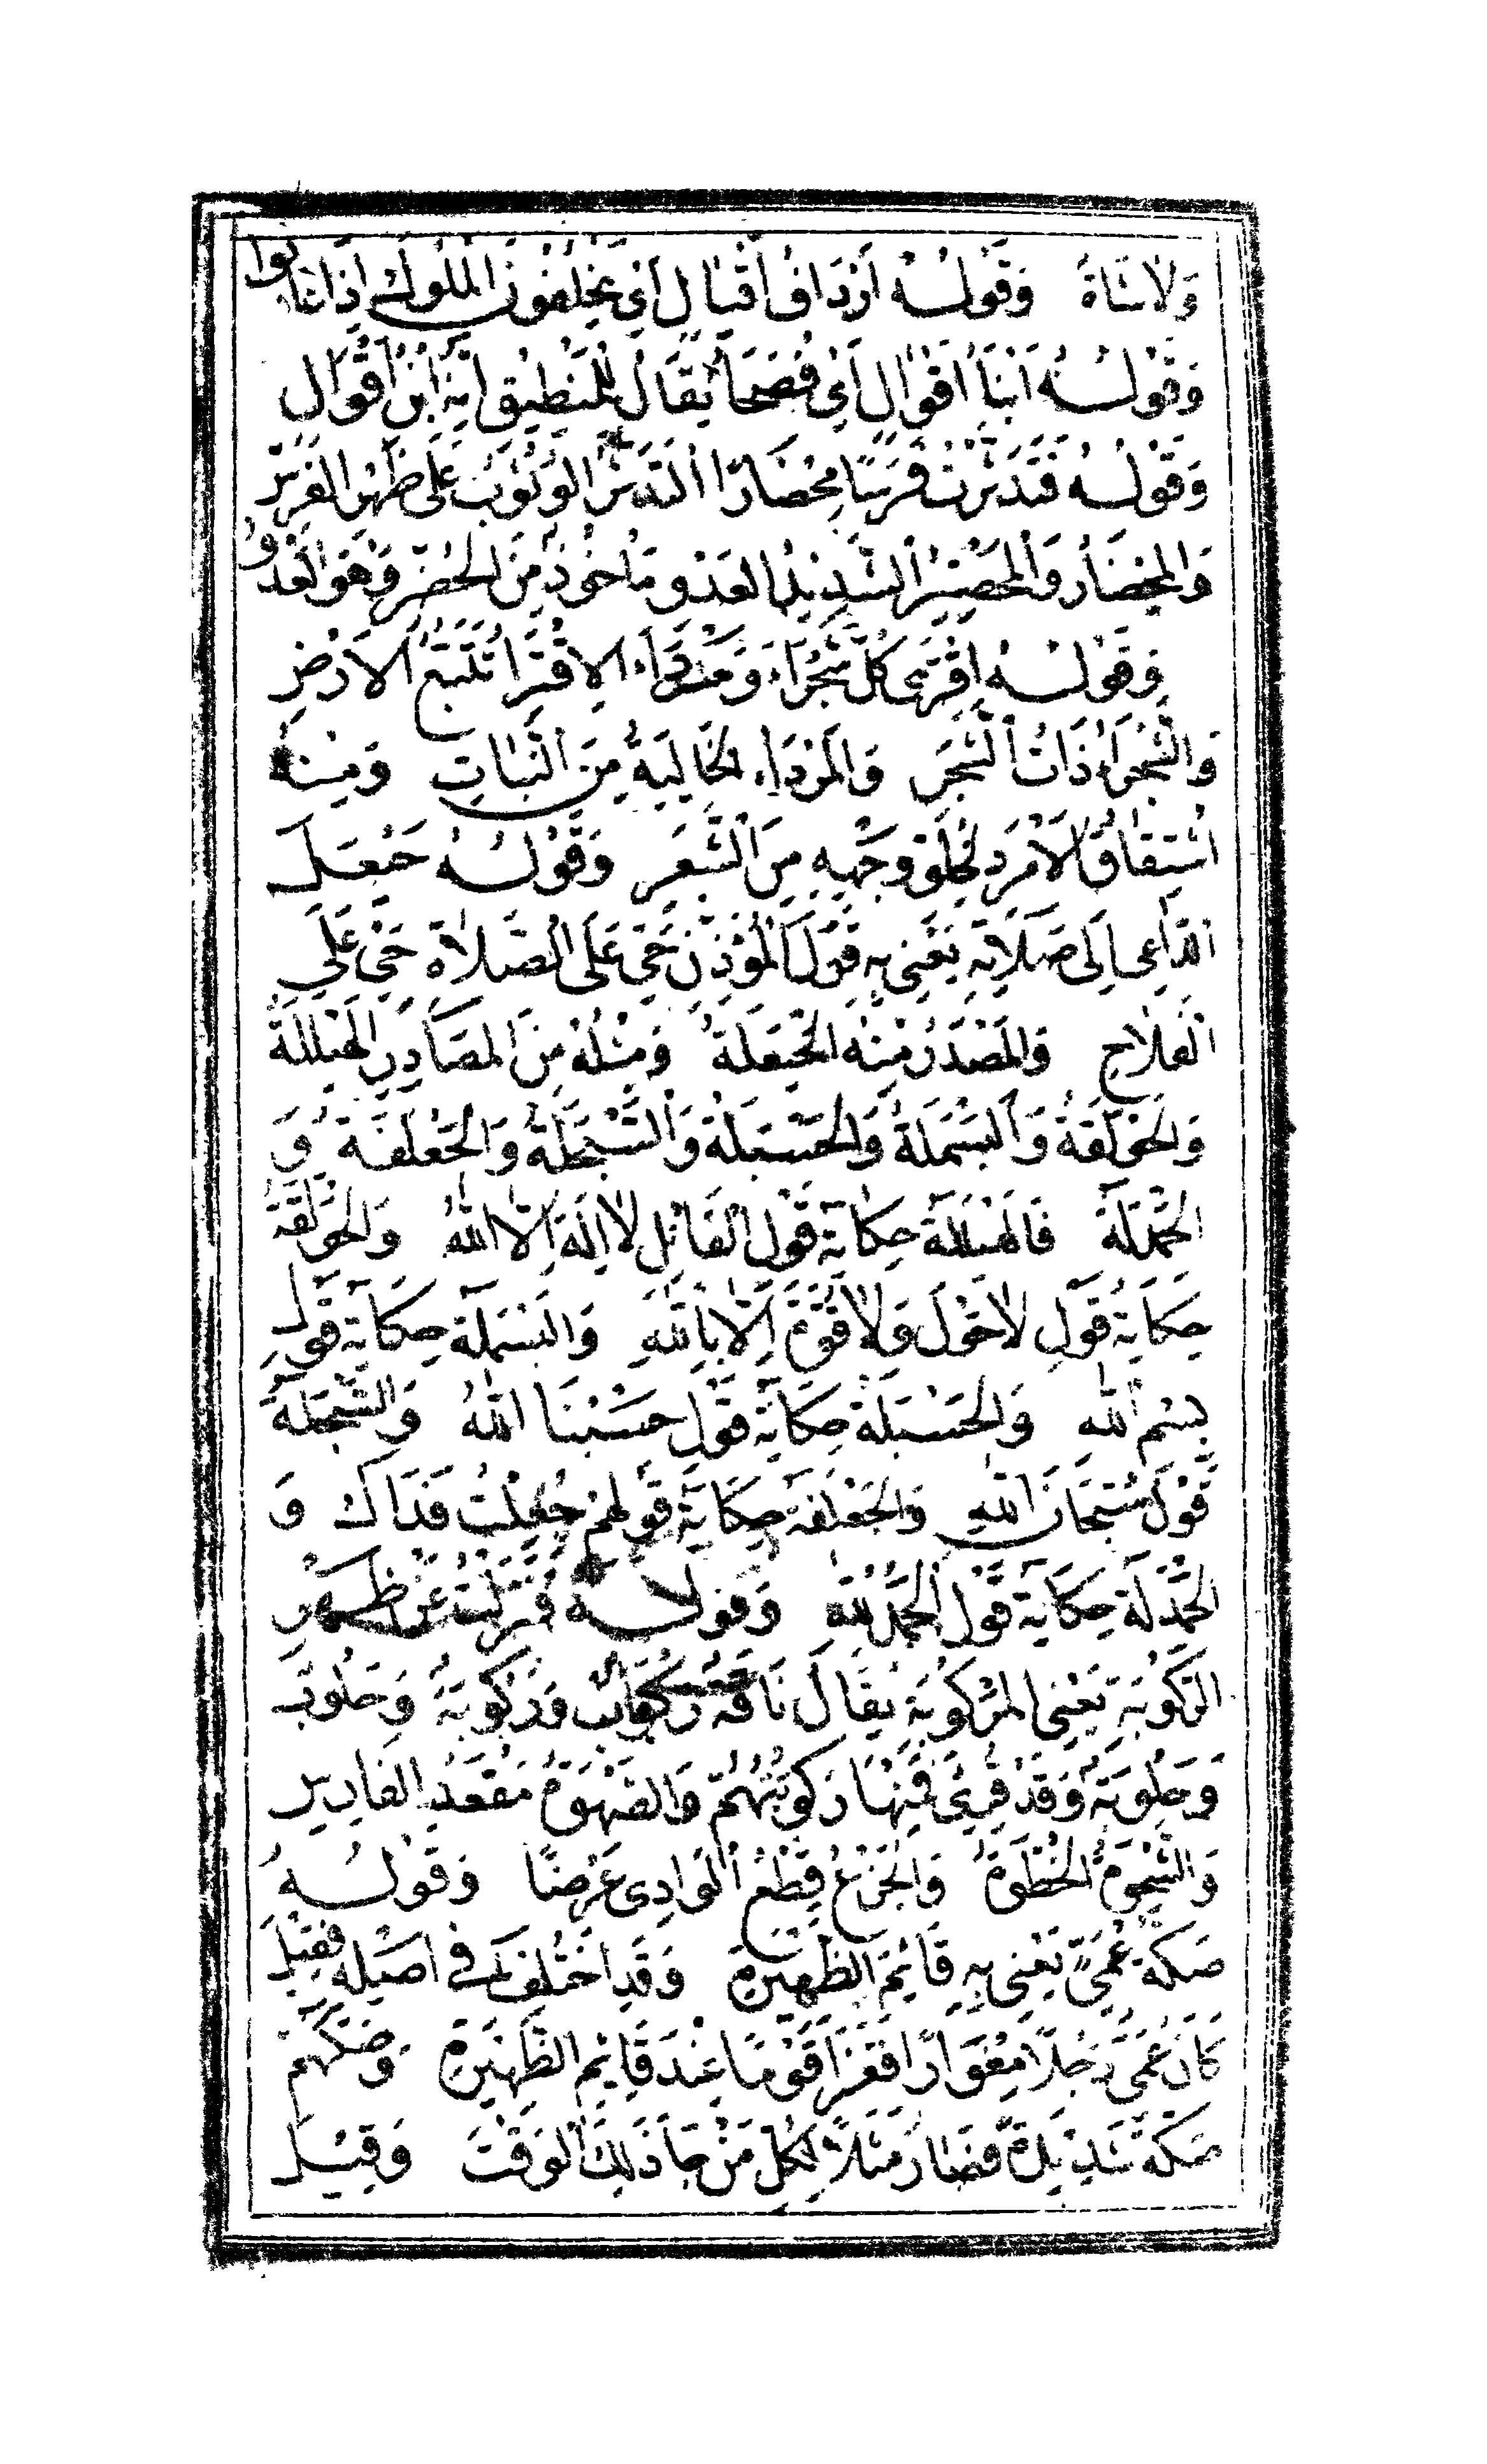 وَلَا شَاةً وَقَوْلُهُ أَرْدَافُ أَقْيَالٍ أَيْ يَخْلُفُونَ الْمُلُوكَ إِذَا غَابُوا
وَقَوْلُهُ أَبْنَاءُ أَقْوَالٍ أَيْ فُصَحَاءُ يُقَالُ لِلْمِنْطِيقِ إِنَّهُ ابْنُ أَقْوَالٍ
وَقَوْلُهُ فَتَدَثَّرْتُ فَرَسًا مِحْضَارًا التَّدَثُّرُ الْوُثُوبُ عَلَى ظَهْرِ الْفَرَسِ
وَالْمِحْضَارُ وَالْمِحْضِيرُ الشَّدِيدُ الْعَدْوِ مَأْخُوذٌ مِنَ الْحُضْرِ وَهُوَ الْعَدْوُ
وَقَوْلُهُ اِقْتَرَى كُلَّ شَجْرَاءَ وَمَرْدَاءَ الِاقْتِرَا تَتَبُّعُ الْاَرْضِ
وَالشَّجْرَاءُ ذَاتُ الشَّجَرِ وَالْمَرْدَاءُ الْخَالِيَةُ مِنَ النَّبَاتِ وَمِنْهُ
اشْتِقَاقُ الْاَمْرَدِ لِخُلُوِّ وَجْهِهِ مِنَ الشَّعَرِ وَقَوْلُهُ حَيْعَلَ
الدَّاعِي اِلَى صَلَاتِهِ يَعْنِي بِهِ قَوْلَ الْمُؤَذِّنِ حَيَّ عَلَى الصَّلَاةِ حَيَّ عَلَى
الْفَلَاحِ وَالْمَصْدَرُ مِنْهُ الْحَيْعَلَةُ وَمِثْلُهُ مِنَ الْمَصَادِرِ الْهَيْلَلَةُ
وَالْحَوْلَقَةُ وَالْبَسْمَلَةُ وَالْحَسْبَلَةُ وَالسَّبْحَلَةُ وَالْجَعْلَفَةُ وَ
الْحَمْدَلَةُ فَالْهَيْلَلَةُ حِكَايَةُ قَوْلِ الْقَائِلِ لَا اِلٰهَ اِلَّا اللّٰهُ وَالْحَوْلَقَةُ
حِكَايَةُ قَوْلِ لَا حَوْلَ وَلَا قُوَّةَ اِلَّا بِاللّٰهِ وَالْبَسْمَلَةُ حِكَايَةُ قَوْلِ
بِسْمِ اللّٰهِ وَالْحَسْبَلَةُ حِكَايَةُ قَوْلِ حَسْبُنَا اللّٰهُ وَالسَّبْحَلَةُ
قَوْلُ سُبْحَانَ اللّٰهِ وَالْجَعْلَفَةُ حِكَايَةُ قَوْلِهِمْ جُعِلْتُ فَدَاكَ وَ
الْحَمْدَلَةُ حِكَايَةُ قَوْلِ الْحَمْدُ لِلّٰهِ وَقَوْلُهُ فَنَزَلْتُ عَنْ ظَهْرِ
الرَّكُوبَةِ يَعْنِي الْمَرْكُوبَةِ يُقَالُ نَاقَةٌ رَكُوبٌ وَرَكُوبَةٌ وَحَلُوبٌ
وَحَلُوبَةٌ وَقَدْ قُرِئَ فَمِنْهَا رَكُوبَتُهُمْ وَالصَّهْوَةُ مَقْعَدُ الْفَارِسِ
وَالشَّحْوَةُ الْخُطْوَةُ وَالْجَزْعُ قَطْعُ الْوَادِي عَرْضًا وَقَوْلُهُ
صَكَّةُ عُمَيٍّ يَعْنِي بِهِ قَائِمَ الظَّهِيرَةِ وَقَدِ اخْتُلِفَ فِي اَصْلِهِ فَقِيلَ
كَانَ عُمَيٌّ رَجُلًا مِغْوَارًا فَغَزَا قَوْمًا عِنْدَ قَائِمِ الظَّهِيرَةِ وَصَكَّهُمْ
صَكَّةً شَدِيدَةً فَصَارَ مَثَلًا لِكُلِّ مَنْ جَاءَ ذَلِكَ الْوَقْتَ وَقِيلَ